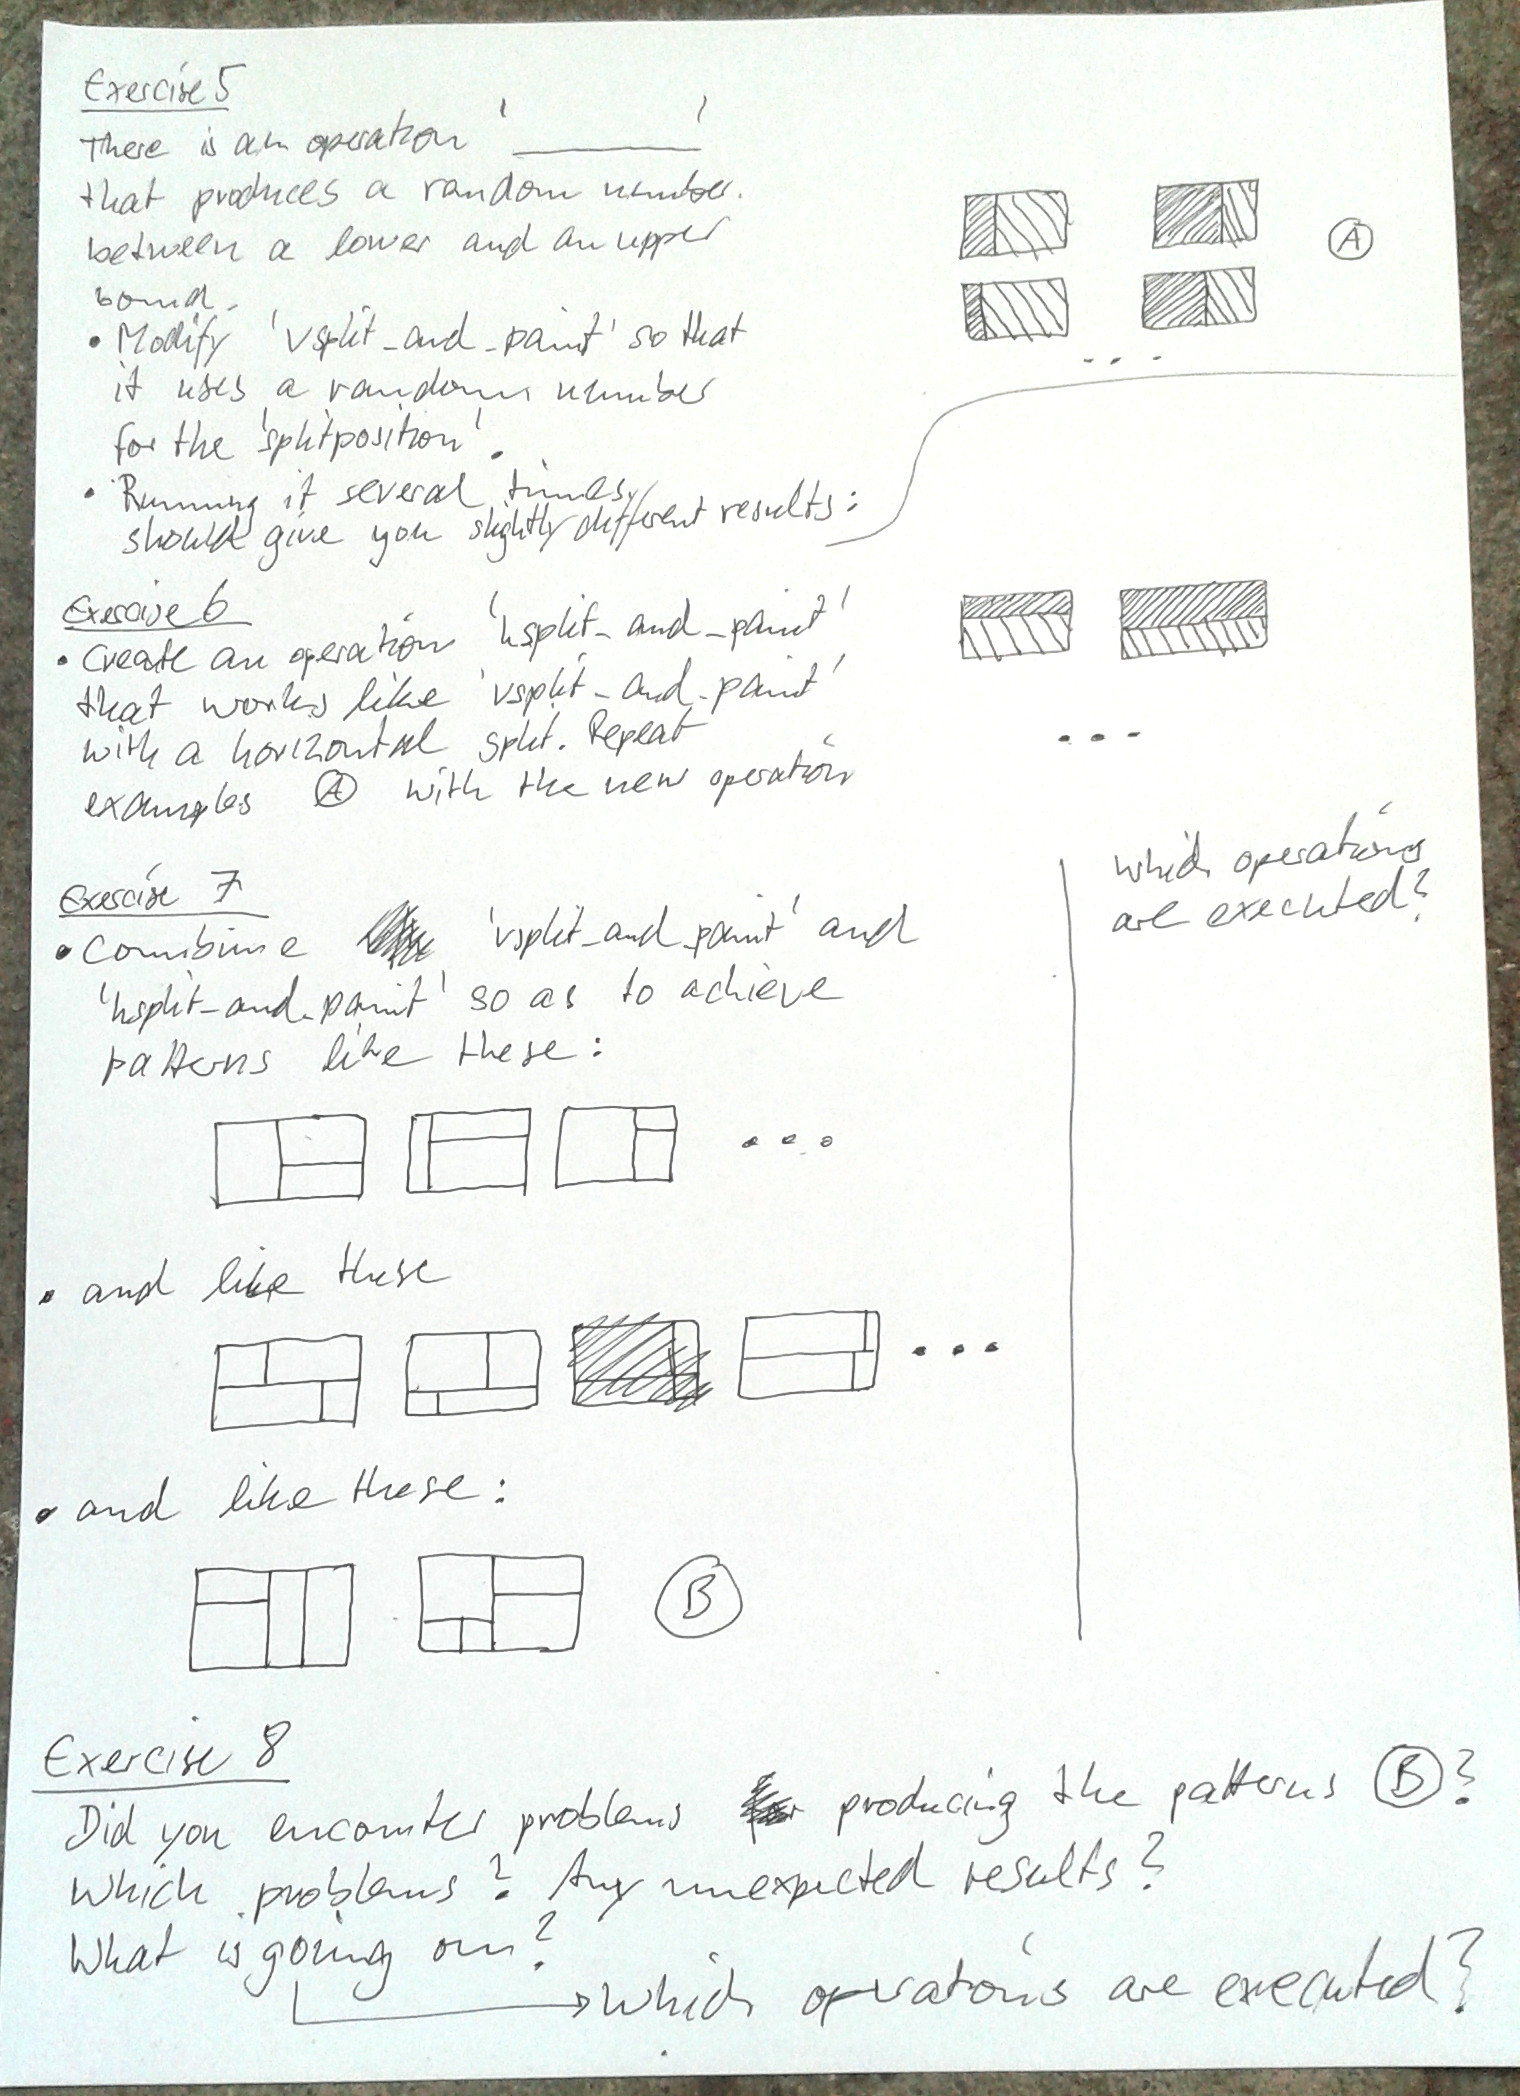 Exercise 5
There is an operation '________'
that produces a random number.
between a lower and an upper
bound.
• Modify 'vsplit_and_paint' so that
it uses a random number
for the 'splitposition'.
• Running it several times,
should give you slightly different results:
A
...
Exercise 6
• Create an operation 'hsplit_and_paint'
that works like 'vsplit_and_paint'
with a horizontal split. Repeat
examples A with the new operation
...
Exercise 7
• Combine 'vsplit_and_paint' and
'hsplit_and_paint' so as to achieve
patterns like these:
...
• and like these
...
• and like these:
B
which operations
are executed?
Exercise 8
Did you encounter problems producing the patterns B?
Which problems? Any unexpected results?
What is going on?
which operations are executed?